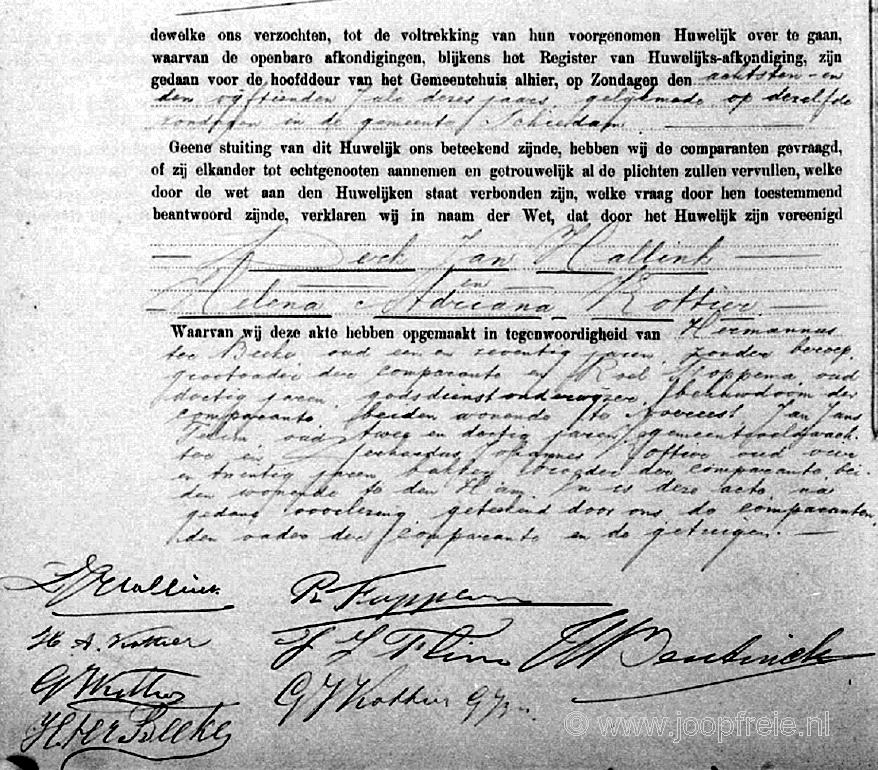 dewelke ons verzochten, tot de voltrekking van hun voorgenomen Huwelijk over te gaan,
waarvan de openbare afkondigingen, blijkens het Register van Huwelijks-afkondiging, zijn
gedaan voor de hoofddeur van het Gemeentehuis alhier, op Zondagen den achtsten en
den vijftienden Juli dezes jaars, gelijkmede op dezelfde
zondagen in de gemeente Schiedam
Geene stuiting van dit Huwelijk ons beteekend zijnde, hebben wij de comparanten gevraagd,
of zij elkander tot echtgenooten aannemen en getrouwelijk al de plichten zullen vervullen, welke
door de wet aan den Huwelijken staat verbonden zijn, welke vraag door hen toestemmend
beantwoord zijnde, verklaren wij in naam der Wet, dat door het Huwelijk zijn vereenigd
Derk Jan Hallink
en
Helena Adriana Kottier
Waarvan wij deze akte hebben opgemaakt in tegenwoordigheid van Hermannus
ter Beeke oud een en zeventig jaren, zonder beroep,
grootvader der comparante en Roel Koppema, oud
dertig jaren, godsdienstonderwijzer, behuwdoom der
comparante, beiden wonende te Jan Jans
oud twee en dertig jaren, gemeenteveldwach-
ter en Gerhardus Johannes Kottier oud vier
en twintig jaren, bakker, broeder der comparante, bei-
den wonende te den Ham. En is deze acte, na
gedane voorlezing geteekend door ons, de comparanten,
den vader der comparante en de getuigen.
DJ Hallink
R Koppema
H. A. Kottier
J J
Bentinck
G Kottier
G J Kottier Gzn.
H ter Beeke
© www.joopfreie.nl